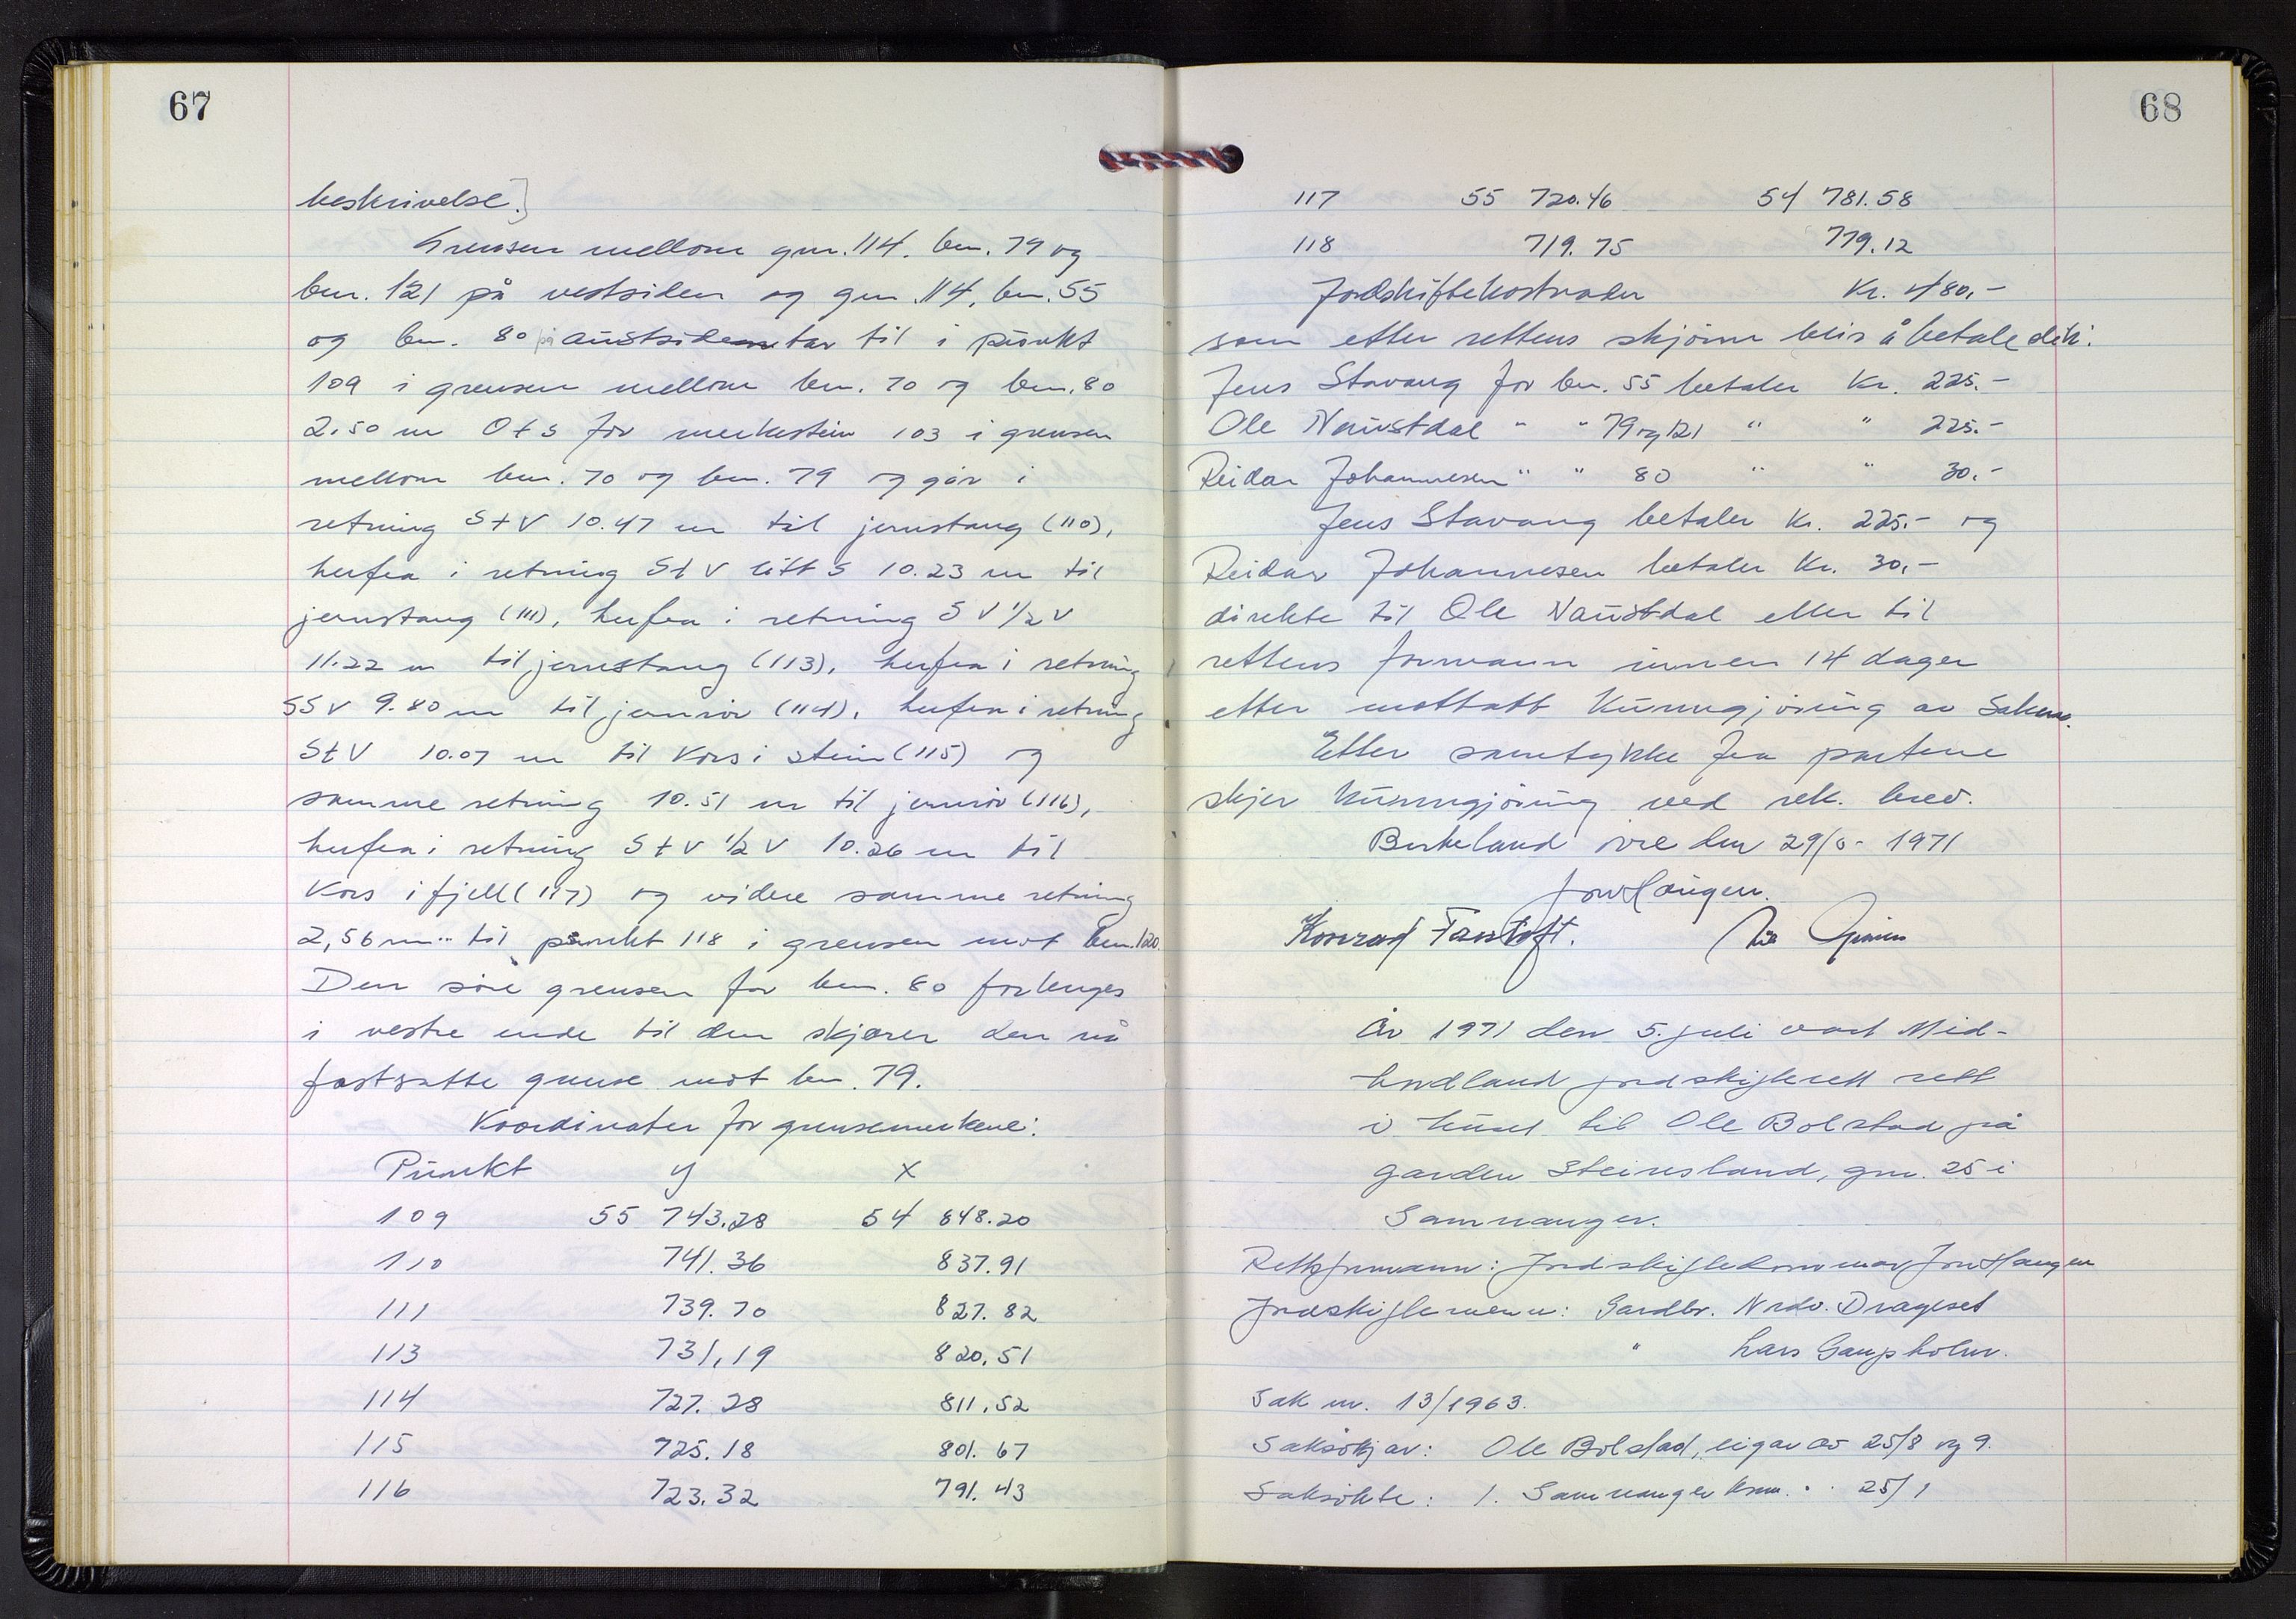 67
beskrivelse.]
Grensen mellom gnr. 114, bnr. 79 og
bnr. 121 på vestsiden og gnr. 114, bnr. 55
og bnr. 80 på austsiden tar til i punkt
109 i grensen mellom bnr. 70 og bnr. 80
2.50 m O t S for merkestein 103 i grensen
mellom bnr. 70 og bnr. 79 og går i
retning S t V 10.47 m til jernstang (110),
herfra i retning S t V litt S 10.23 m til
jernstang (111), herfra i retning S V 1/2 V
11.22 m til jernstang (113), herfra i retning
SSV 9.80 m til jernrør (114), herfra i retning
S t V 10.07 m til kors i stein (115) og
samme retning 10.51 m til jernrør (116),
herfra i retning S t V 1/2 V 10.26 m til
kors i fjell (117) og videre samme retning
2,56 m til punkt 118 i grensen mot bnr. 120.
Den søre grensen for bnr. 80 forlenges
i vestre ende til den skjærer den nå
fastsatte grense mot bnr. 79.
Koordinater for grensemerkene:
Punkt y x
109 55 743.28 54 848.20
110 741.36 837.91
111 739.70 827.82
113 731,19 820,51
114 727.28 811,52
115 725.18 801.67
116 723.32 791.43
68
117 55 720.46 54 781.58
118 719.75 779.12
Jordskiftekostnader Kr. 480,-
som etter rettens skjønn blir å betale slik:
Jens Stavang for bnr. 55 betaler Kr. 225.-
Ole Naustdal " " 79 og 121 " " 225.-
Reidar Johannesen " " 80 " " 30.-
Jens Stavang betaler Kr. 225.- og
Reidar Johannesen betaler Kr. 30,-
direkte til Ole Naustdal eller til
rettens formann innen 14 dager
etter mottatt kunngjøring av saken.
Etter samtykke fra partene
skjer kunngjøring ved rek. brev.
Birkeland øvre den 29/6- 1971
Jon Haugen.
Konrad Fanstoft.
År 1971 den 5. juli vart Mid-
hordland jordskifterett sett
i huset til Ole Bolstad på
garden Steinsland, gnr. 25 i
Samnanger.
Rettsformann: Jordskiftedommar Jon Haugen
Jordskiftemenn: Gardbr. Nrdv. Drageset
" Lars Gaupholm.
Sak nr. 13/1963.
Saksøkjar: Ole Bolstad, eigar av 25/8 og 9.
Saksøkte: 1. Samnanger komm. " " 25/1